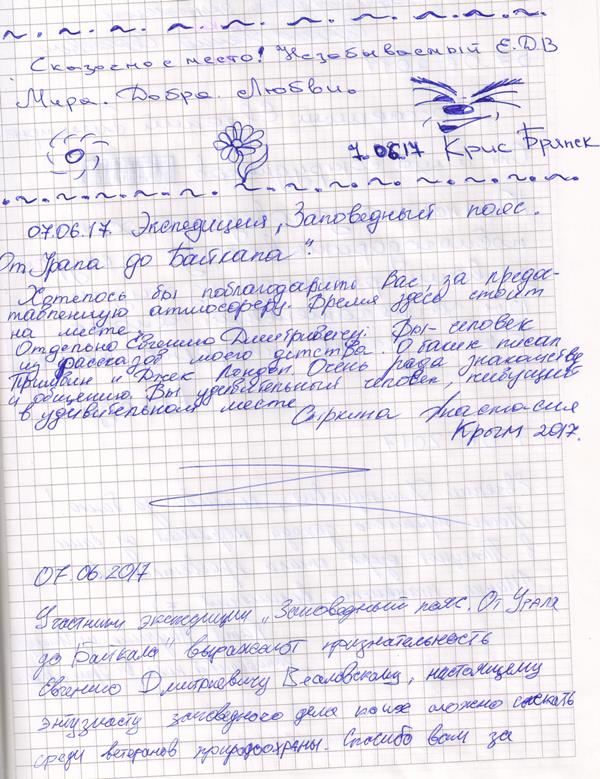 Сказочное место! Незабываемый Е.Д.В
Мира. Добра. Любви.
7.06.17 Крис Брипек
07.06.17. Экспедиция „Заповедный пояс.
От Урала до Байкала".
Хотелось бы поблагодарить Вас, за предос-
тавленную атмосферу. Время здесь стоит
на месте.
Отдельно Евгению Дмитриевичу. Вы - человек
из рассказов моего детства. О таких писал
Пришвин и Джек Лондон. Очень рада знакомству
и общению. Вы удивительный человек, живущий
в удивительном месте
Анастасия
Крым 2017.
07.06.2017
Участники экспедиции „Заповедный пояс. От Урала
до Байкала" выражают признательность
Евгению Дмитриевичу Веаловскому, настоящему
энтузиасту заповедного дела каких можно сыскать
среди ветеранов природоохраны. Спасибо вам за